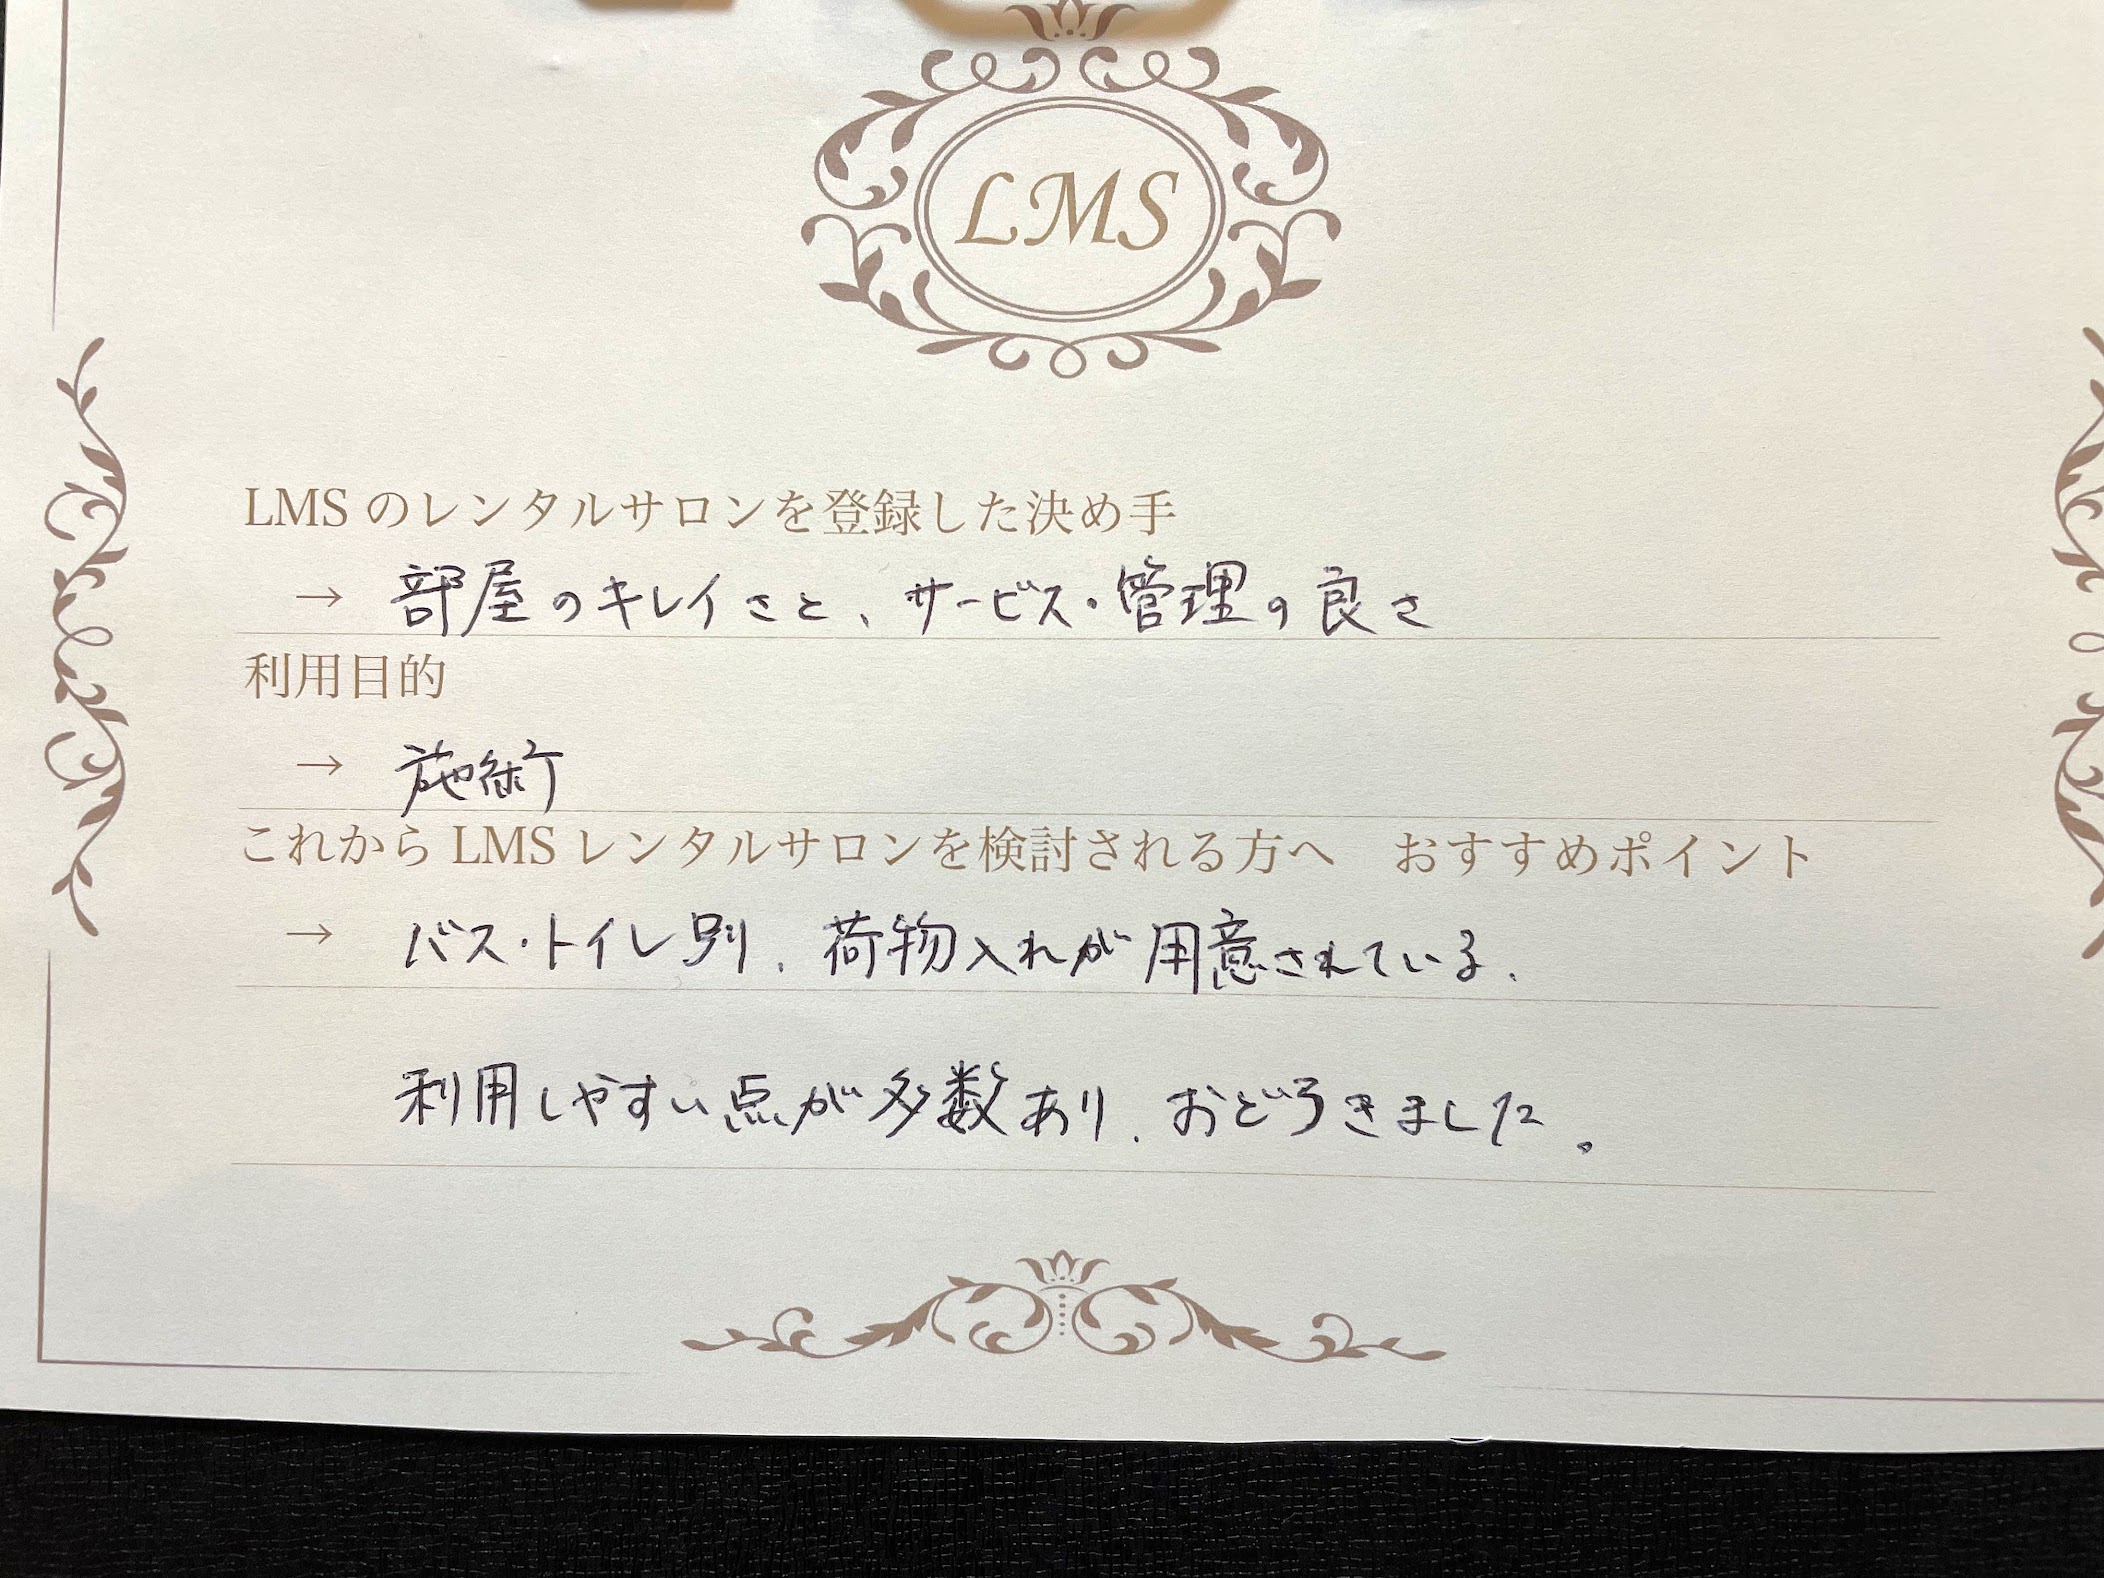 LMS
LMS のレンタルサロンを登録した決め手
→ 部屋のキレイさと、サービス・管理の良さ
利用目的
→ 施術
これから LMS レンタルサロンを検討される方へ　おすすめポイント
→ バス・トイレ別、荷物入れが用意されている、
利用しやすい点が多数あり、おどろきました。